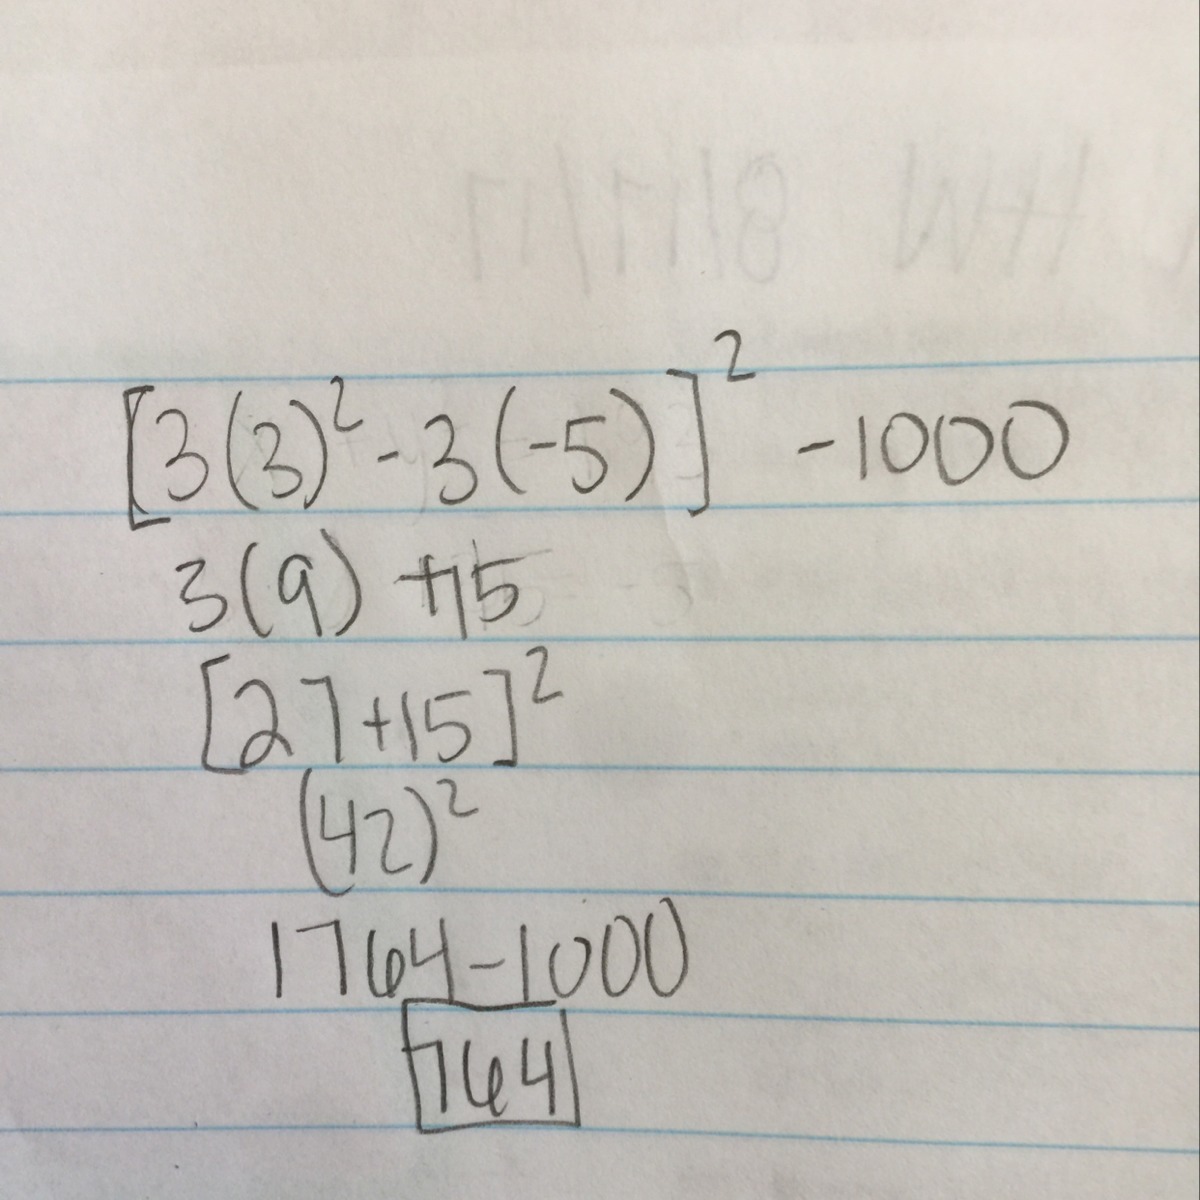 HW 8/17/17
[3(3)² - 3(-5)]² - 1000
3(9) +15
[27+15]²
(42)²
1764-1000
764